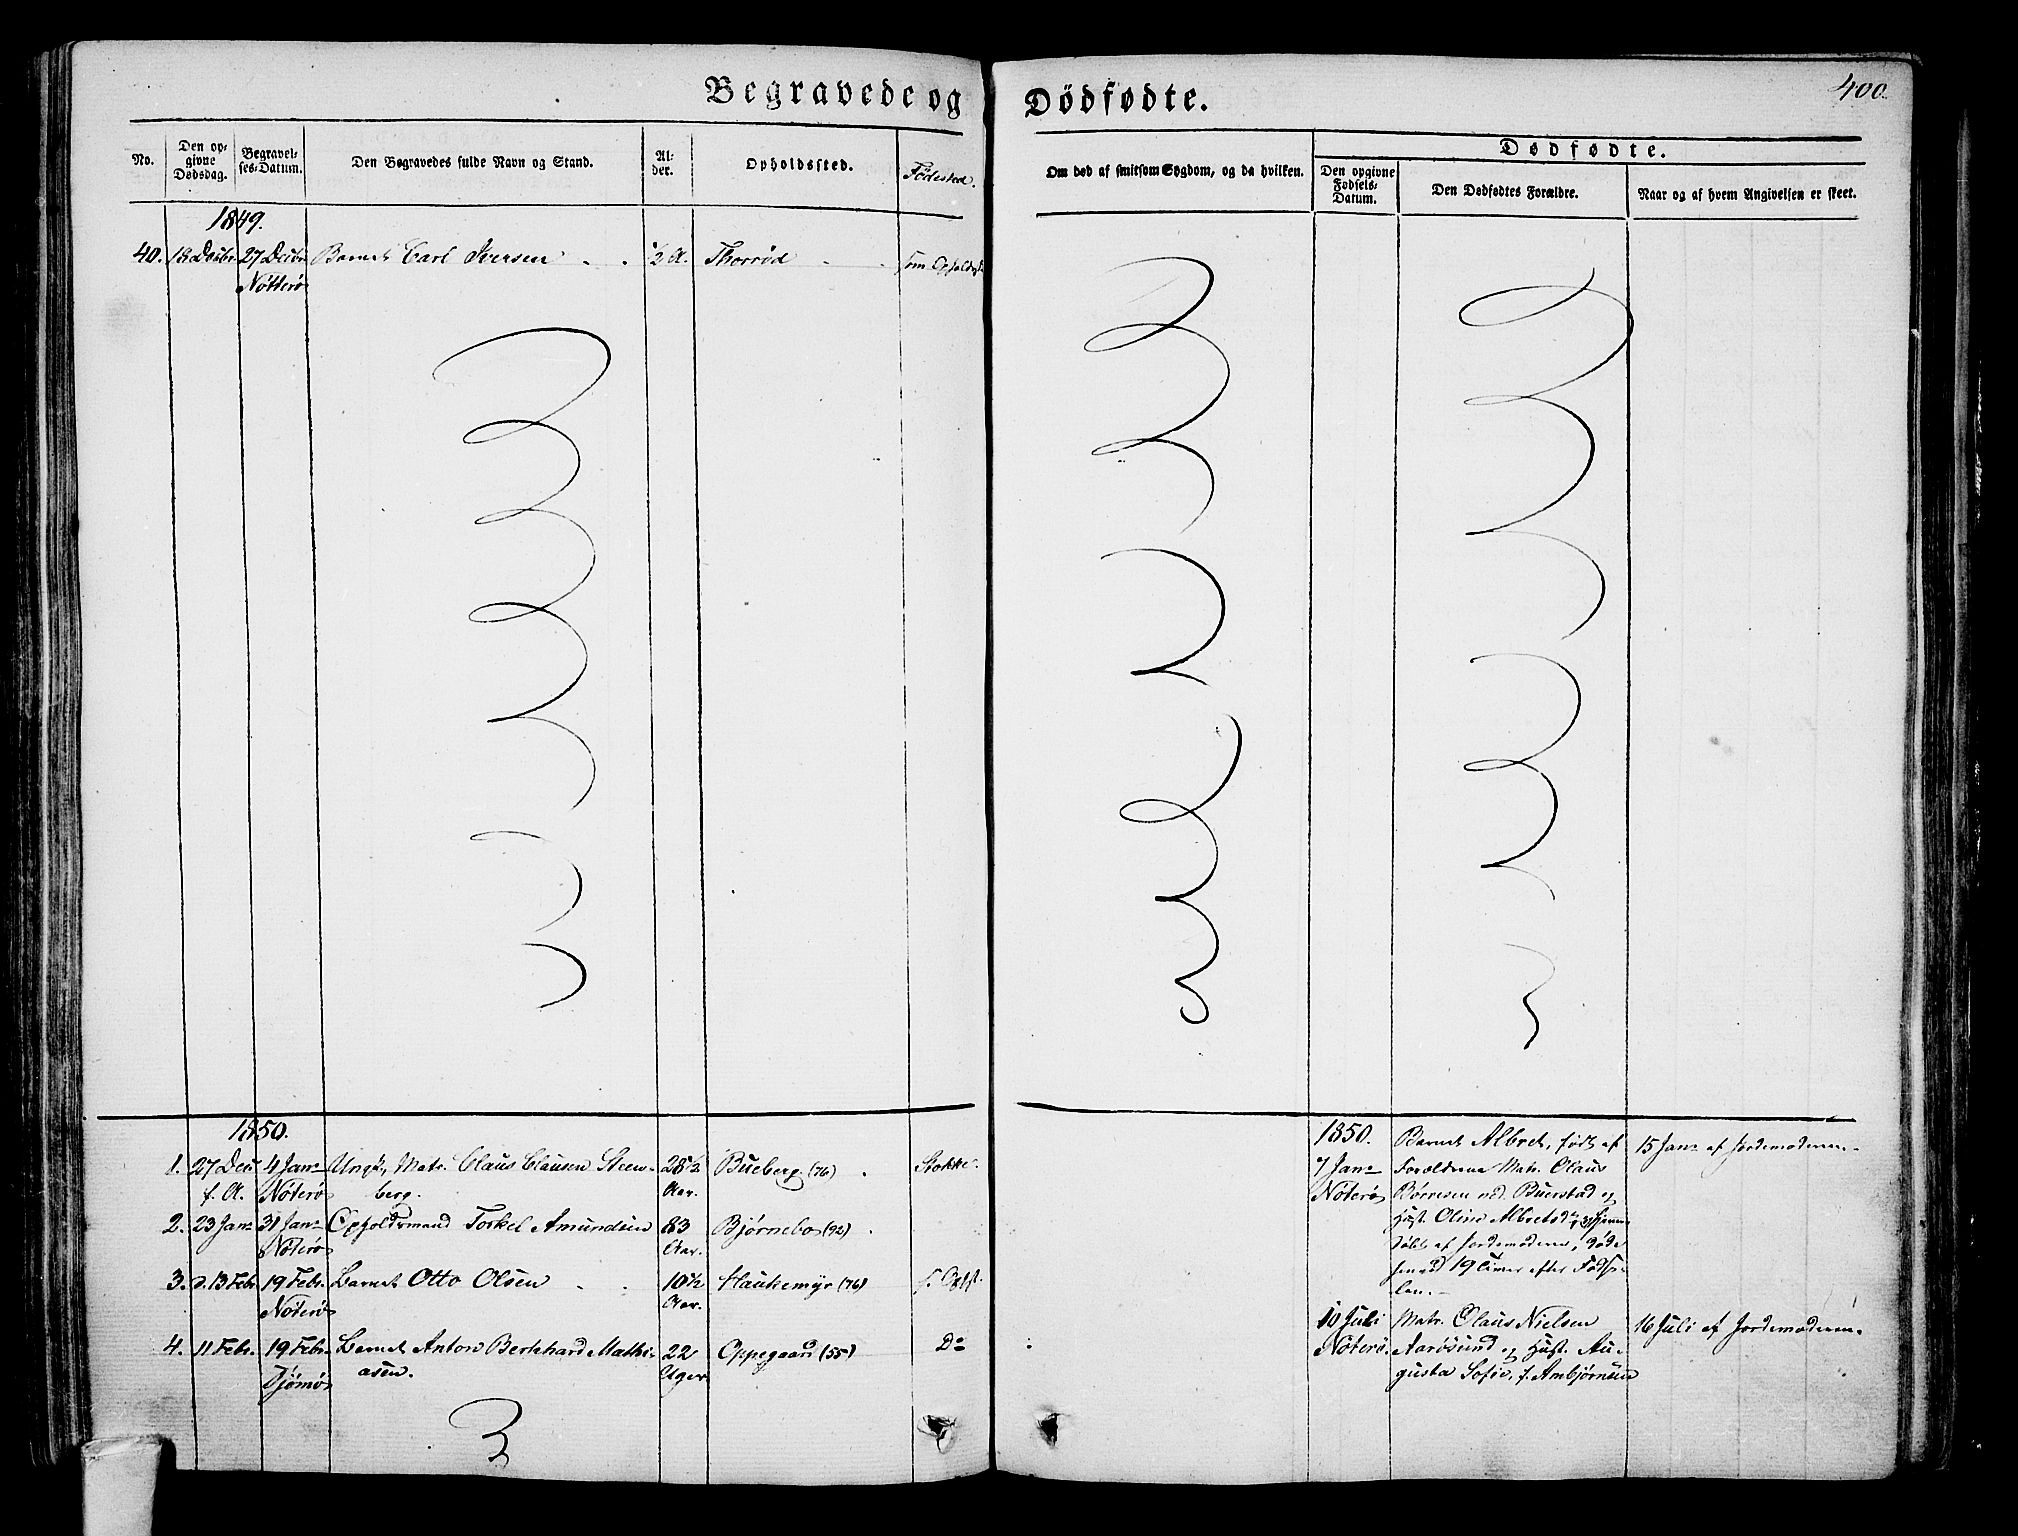 Begravede og Dødfødte.
400
No.
Den opgivne Dødsdag.
Begravelses-Datum.
Den Begravedes fulde Navn og Stand.
Alder.
Opholdssted.
Fødested.
Om død af smitsom Sygdom, og da hvilken.
Dødfødte.
Den opgivne Fødsels-Datum.
Den Dødfødtes Forældre.
Naar og af hvem Angivelsen er skeet.
1849.
40. 18 Decbr. 27 Decbr. Barnet Carl Iversen ½ A. Thorrød som Opholdsst.
Nötterø
1850.
1. 27 Dec 4 Janr Ungk. Matr. Claus Clausen Steen- 28½ Bueberg (76) Stokke
f. A. Nöterø berg. Aar.
2. 23 Janr 31 Janr Opholdsmand Torkel Amundsen 83 Bjørnebo (92)
Nöterø Aar.
3. d. 13 Febr. 19 Febr. Barnet Otto Olsen 10½ Haukemyr (76) s. Opst.
Nöterø Aar.
4. 11 Febr. 19 Febr. Barnet Anton Bernhard Mathi- 22 Oppegaard (55) Do
Tjømø asen. Uger
1850. Barnet Albret, født af 15 Janr af Jordemoderen.
7 Janr Forældrene Matr. Claus
Nöterø Børresen ved. Buerstad og
Hust. Oline Albretsdr, hjemme
døbt af Jordemoderen, døde
19 Timer efter Fødse-
len.
10 Juli Matr. Claus Nielsen 16 Juli af Jordemoderen.
Nöterø. Aarøsund og Hust. Au-
gusta Sofie, f. Ambjørnsen